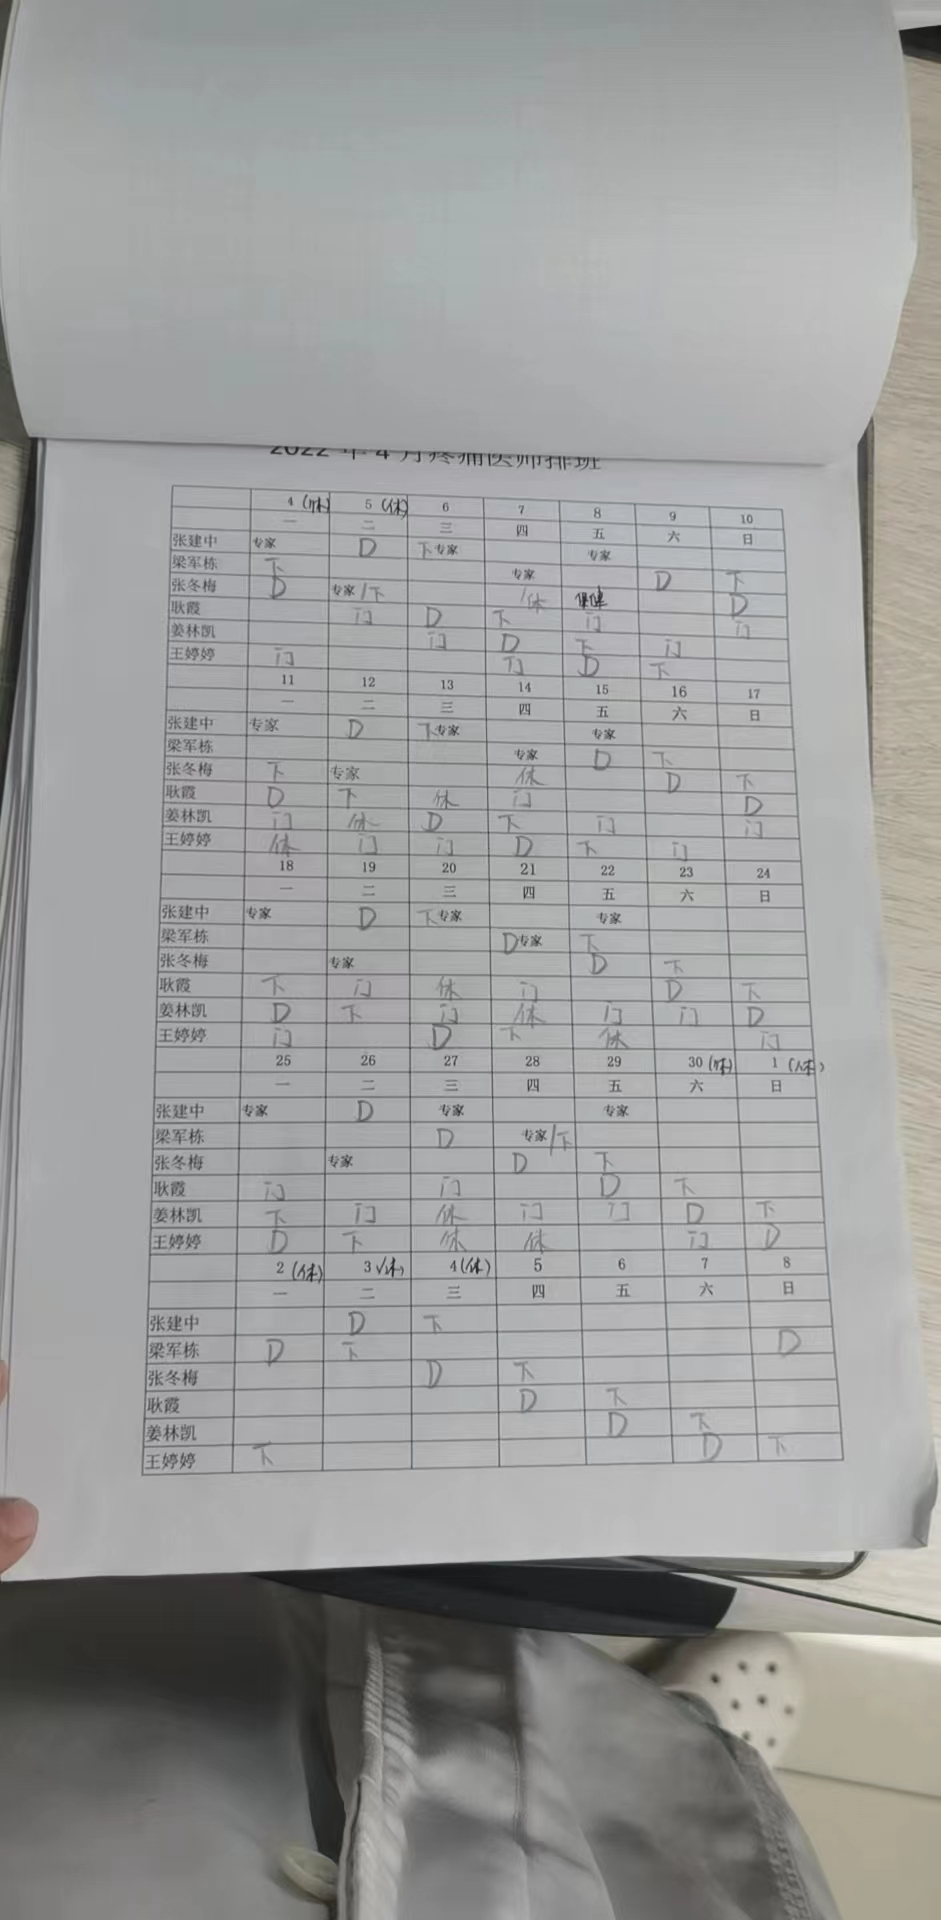 2022年4月疼痛医师排班
4(休) 5(休) 6 7 8 9 10
一 二 三 四 五 六 日
张建中 专家 D 下专家 专家
梁军栋 下 专家 D 下
张冬梅 D 专家/下 /休 D
耿霞 门 D 下 门 门
姜林凯 门 D 下 门
王婷婷 门 门 D 下
11 12 13 14 15 16 17
一 二 三 四 五 六 日
张建中 专家 D 下专家 专家
梁军栋 专家 D 下
张冬梅 下 专家 休 D 下
耿霞 D 下 休 门 D
姜林凯 门 休 D 下 门 门
王婷婷 休 门 门 D 下 门
18 19 20 21 22 23 24
一 二 三 四 五 六 日
张建中 专家 D 下专家 专家
梁军栋 D专家 下
张冬梅 专家 D 下
耿霞 下 门 休 门 D 下
姜林凯 D 下 门 休 门 门 D
王婷婷 门 D 下 休 门
25 26 27 28 29 30(休) 1(休)
一 二 三 四 五 六 日
张建中 专家 D 专家 专家
梁军栋 D 专家/下
张冬梅 专家 D 下
耿霞 门 门 D 下
姜林凯 下 门 休 门 门 D 下
王婷婷 D 下 休 休 门 D
2(休) 3(休) 4(休) 5 6 7 8
一 二 三 四 五 六 日
张建中 D 下
梁军栋 D 下 D
张冬梅 D 下
耿霞 D 下
姜林凯 D 下
王婷婷 下 D 下